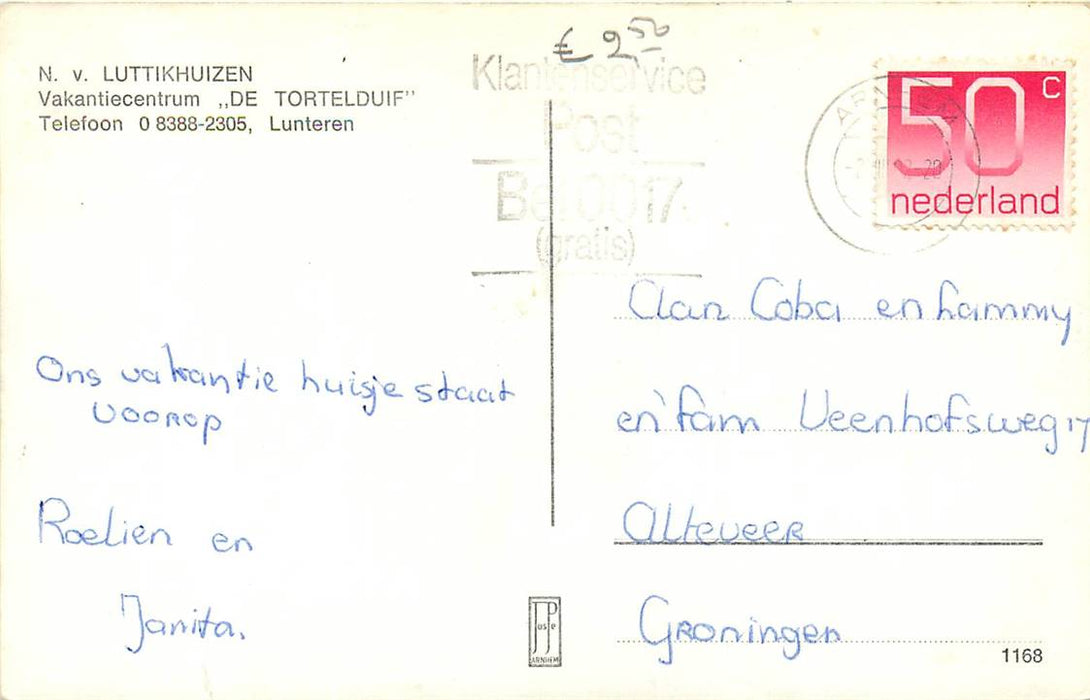 € 2,50
N. v. LUTTIKHUIZEN
Vakantiecentrum „DE TORTELDUIF”
Telefoon 0 8388-2305, Lunteren
Klantenservice
Post
Bel 0017
(gratis)
ARNHEM
50 c
nederland
Ons vakantie huisje staat
voorop
Roelien en
Janita.
Aan Coba en Lammy
en fam Veenhofsweg 17
Alteveer
Groningen
ARNHEM
1168